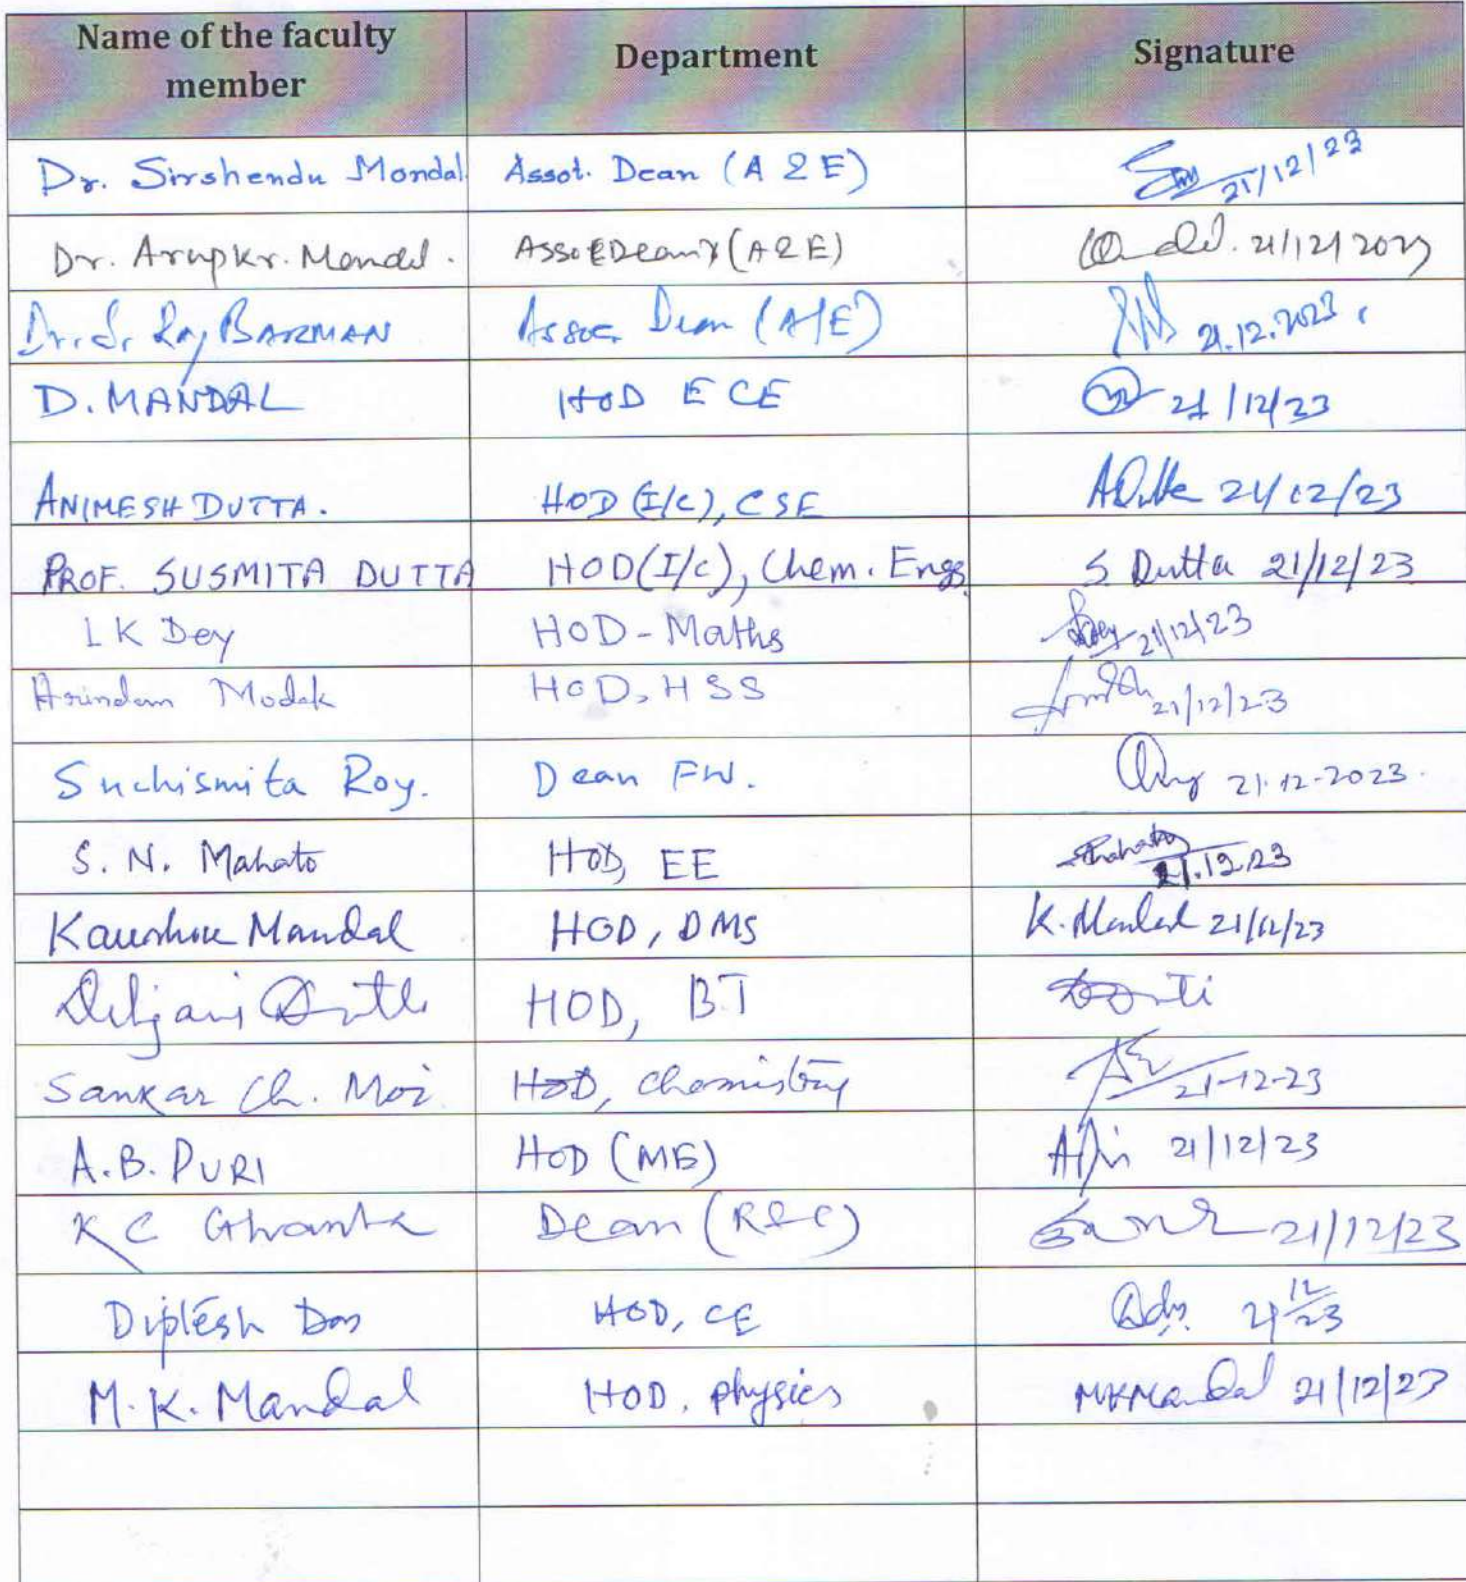 Name of the faculty member Department Signature
Dr. Sirshendu Mondal Assot. Dean (A & E) 21/12/23
Dr. Arup Kr. Mondal. (A & E) 21/12/2023
Dr. S. Raj BARMAN Assoc. Dean (A/E) 21.12.2023
D. MANDAL HOD ECE 21/12/23
ANIMESH DUTTA. HOD (I/C), CSE ADutta 21/12/23
PROF. SUSMITA DUTTA HOD (I/c), Chem. Engg. S. Dutta 21/12/23
L K Dey HOD - Maths Dey 21/12/23
Arindam Modak HOD, HSS 21/12/23
Suchismita Roy. Dean FW. 21.12.2023.
S. N. Mahato HOD, EE SMahato 21.12.23
Mandal HOD, DMS K. Mandal 21/12/23
HOD, BT
Sankar Ch. Moi HOD, Chemistry 21-12-23
A.B. PURI HOD (ME) 21/12/23
K C Ghanta Dean (R&C) 21/12/23
Diptesh Das HOD, CE 21/12/23
M. K. Mandal HOD, physics MKMandal 21/12/23